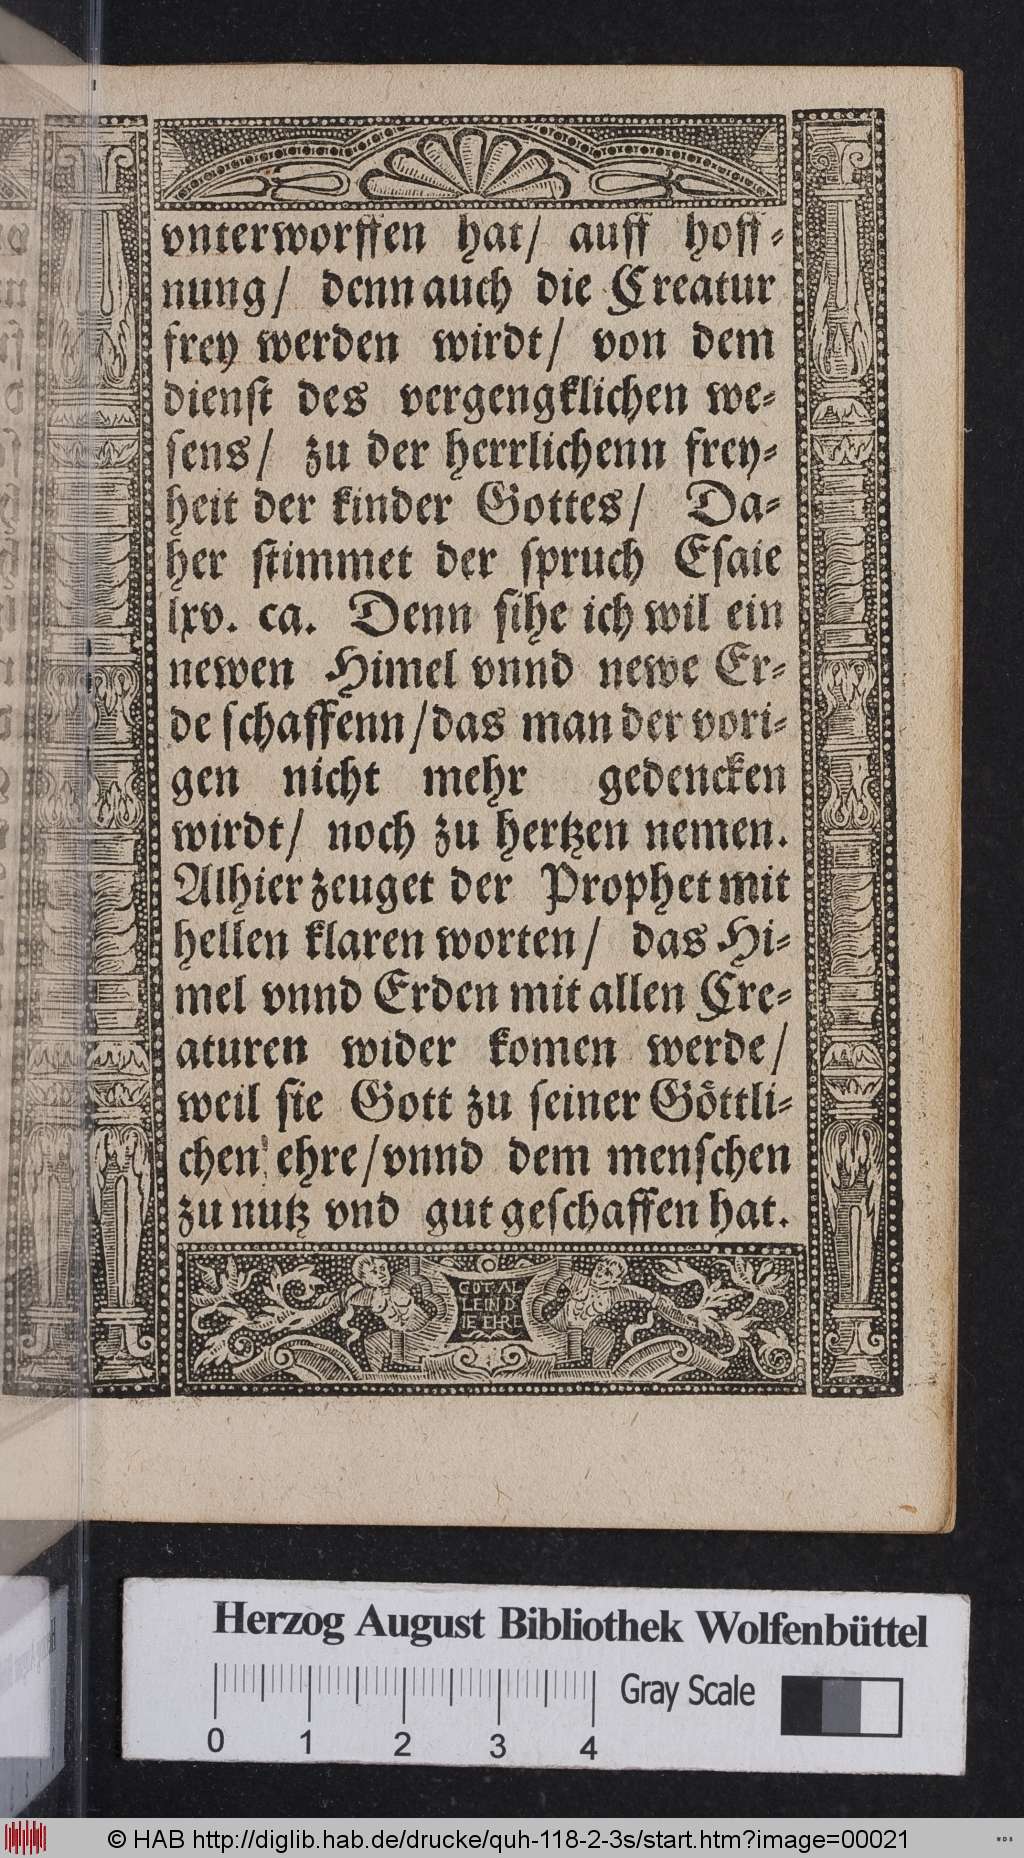 vnterworffen hat/ auff hoff⸗
nung/ denn auch die Creatur
frey werden wirdt/ von dem
dienſt des vergengklichen we⸗
ſens/ zu der herrlichenn frey⸗
heit der kinder Gottes/ Da⸗
her ſtimmet der ſpruch Eſaie
lxv. ca. Denn ſihe ich wil ein
newen Himel vnnd newe Er⸗
de ſchaffenn/das man der vori⸗
gen nicht mehr gedencken
wirdt/ noch zu hertzen nemen.
Alhier zeuget der Prophet mit
hellen klaren worten/ das Hi⸗
mel vnnd Erden mit allen Cre⸗
aturen wider komen werde/
weil ſie Gott zu ſeiner Göttli⸗
chen ehre/vnnd dem menſchen
zu nutz vnd gut geſchaffen hat.
GOT AL
LEIN D
IE EHRE
Herzog August Bibliothek Wolfenbüttel
Gray Scale
0 1 2 3 4
© HAB http://diglib.hab.de/drucke/quh-118-2-3s/start.htm?image=00021